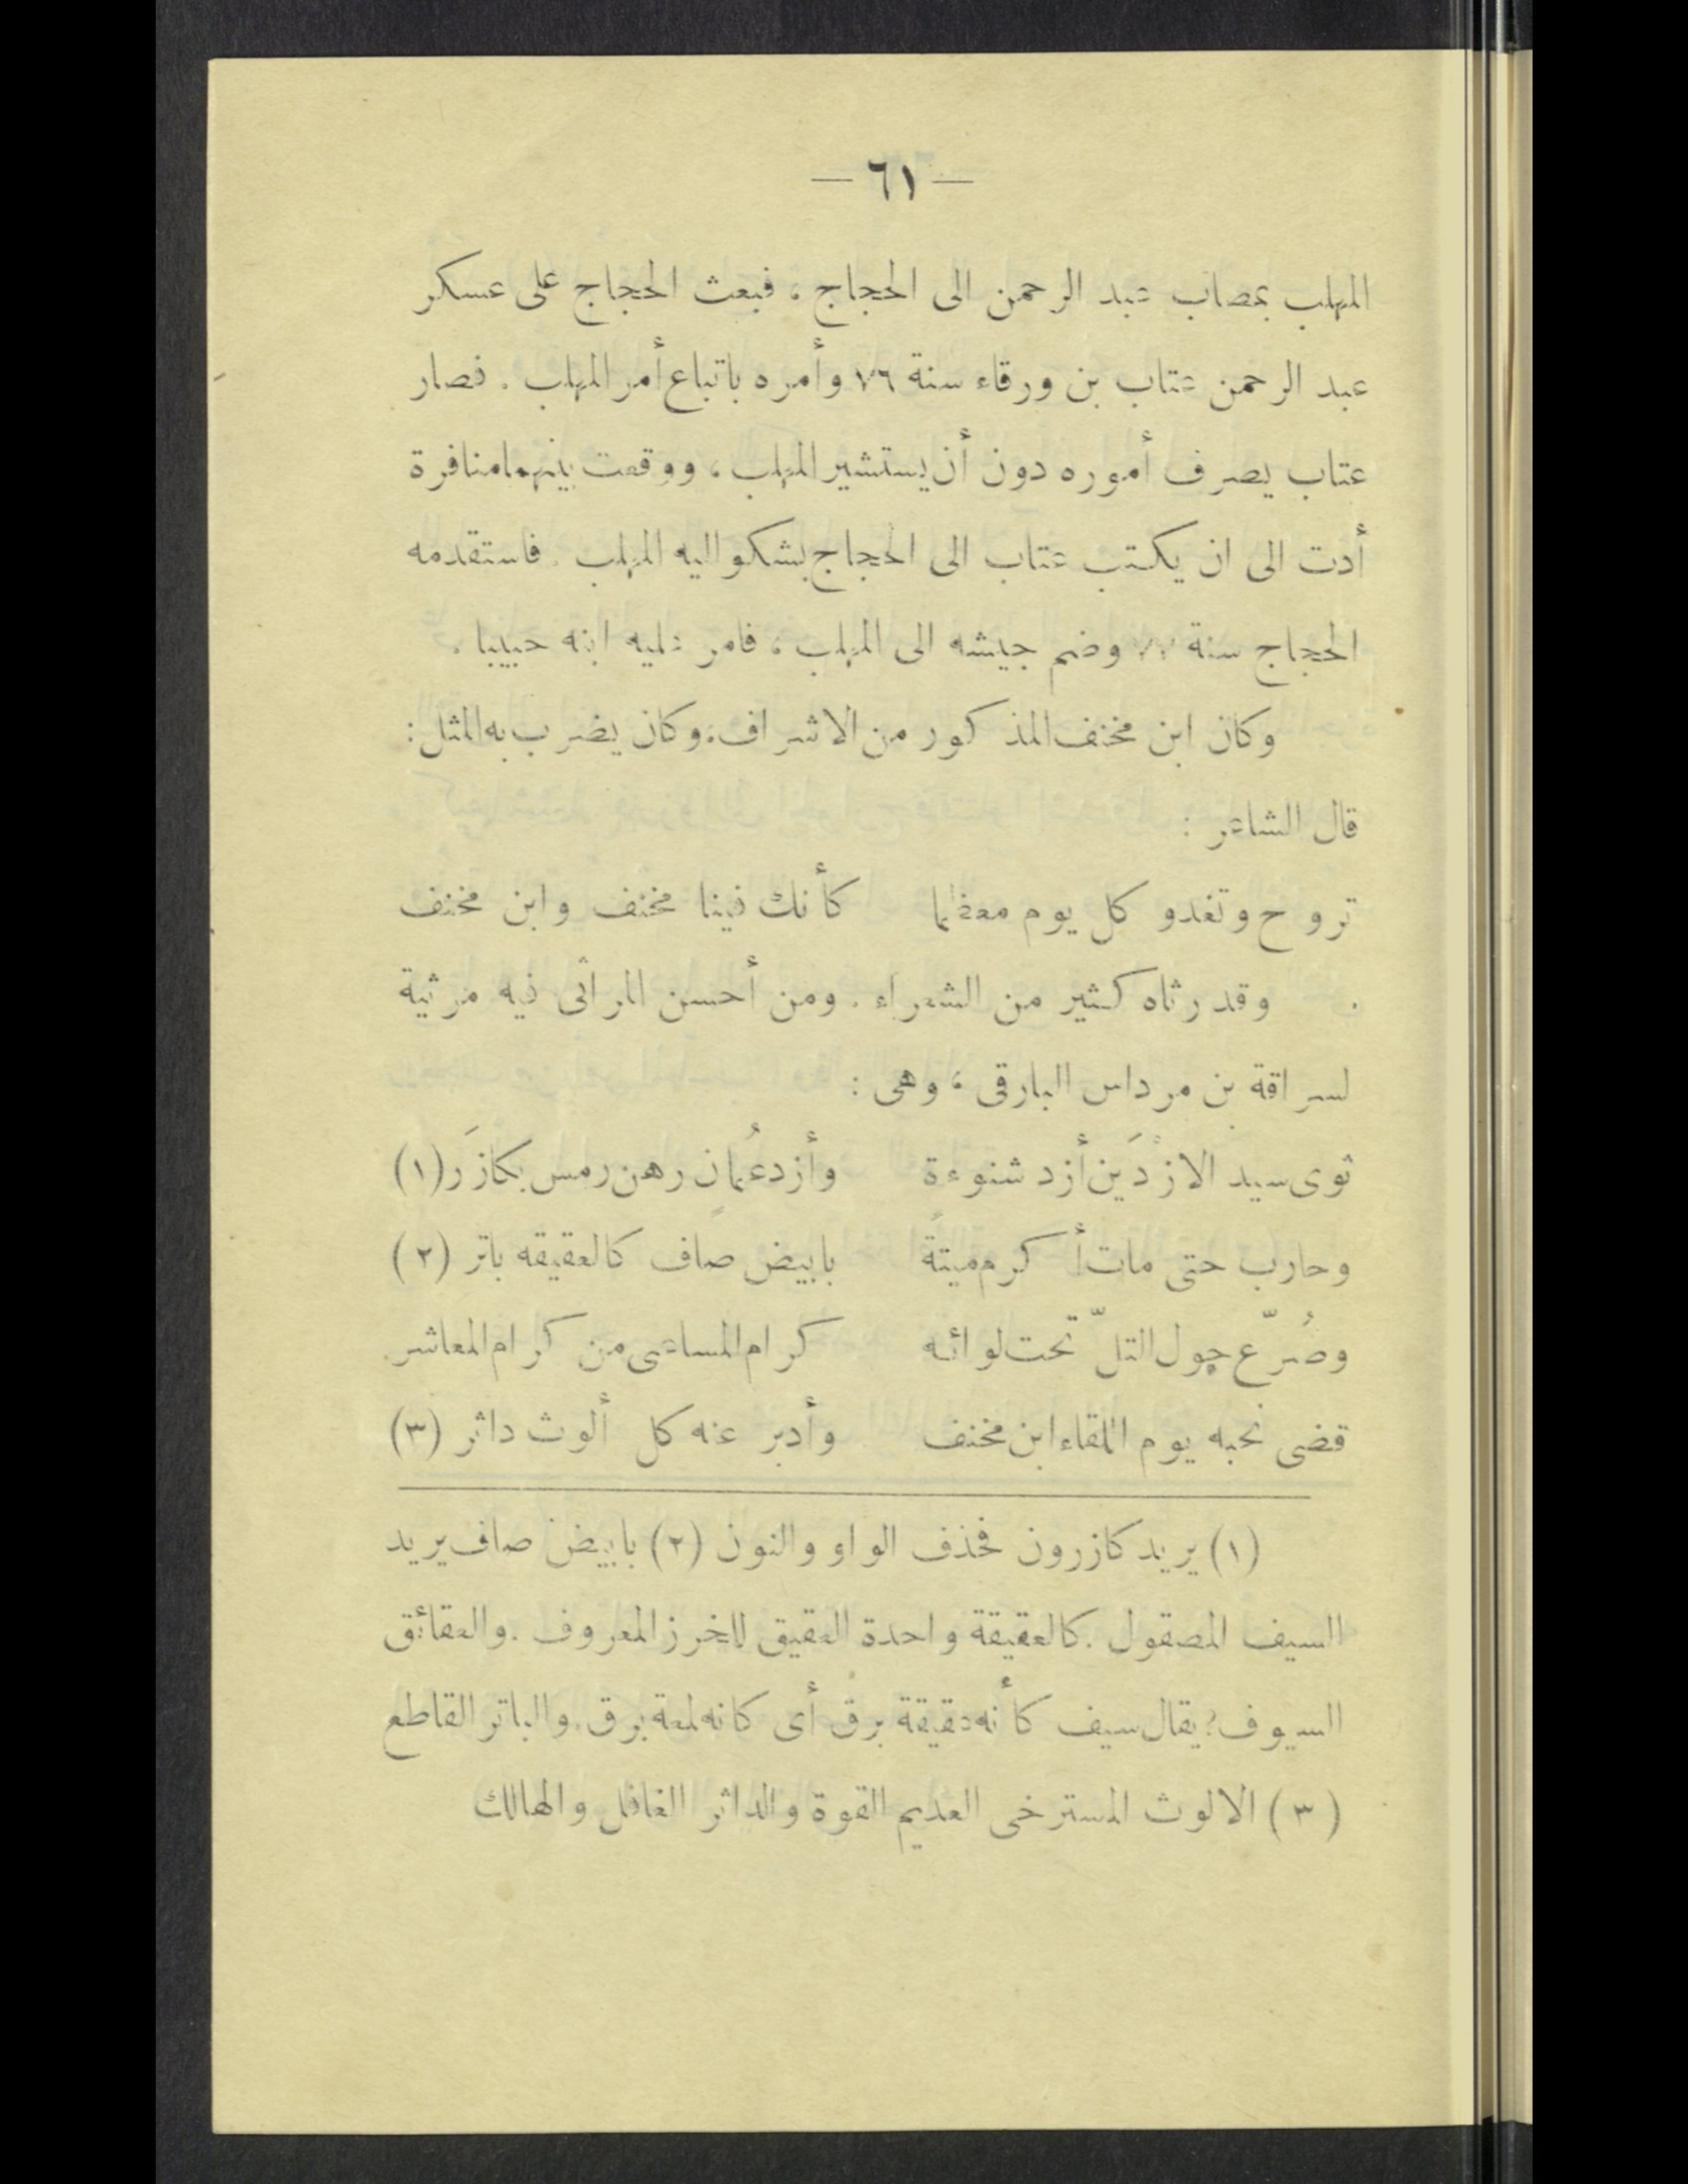 — ٦١ —
المهلب بمصاب عبد الرحمن الى الحجاج ، فبعث الحجاج على عسكر
عبد الرحمن عتاب بن ورقاء سنة ٧٦ وأمره باتباع أمر المهلب . فصار
عتاب يصرف أموره دون أن يستشير المهلب ، ووقعت بينهما منافرة
أدت الى ان يكتب عتاب الى الحجاج يشكو اليه المهلب . فاستقدمه
الحجاج سنة ٧٧ وضم جيشه الى المهلب ، فامر عليه ابنه حبيبا .
وكان ابن مخنف المذكور من الاشراف ، وكان يضرب به المثل :
قال الشاعر :
تروح وتغدو كل يوم معظما كأنك فينا مخنف وابن مخنف
وقد رثاه كثير من الشعراء . ومن أحسن المراثى فيه مرثية
لسراقة بن مرداس البارقى ، وهى :
ثوى سيد الازْدَين أزد شنوءة وأزد عُمان رهن رمس بكازَر (١)
وحارب حتى مات أكرم ميتةً بابيض صافٍ كالعقيقه باتر (٢)
وصُرّع حول التلّ تحت لوائه كرام المساعى من كرام المعاشر
قضى نحبه يوم اللقاء ابن مخنف وأدبر عنه كل ألوث داثر (٣)
(١) يريد كازرون فحذف الواو والنون (٢) بابيض صاف يريد
السيف المصقول . كالعقيقة واحدة العقيق للخرز المعروف . والعقائق
السيوف ؛ يقال سيف كأنه عقيقة برق أى كانه لمعة برق . والباتر القاطع
(٣) الالوث المسترخى العديم القوة والداثر الغافل والهالك